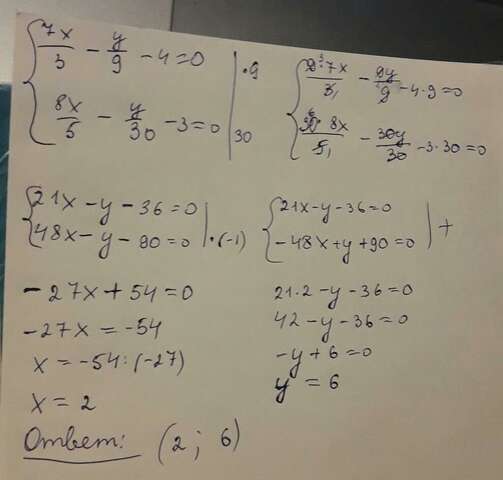 7x/3 − y/9 − 4 = 0 | · 9
8x/5 − y/30 − 3 = 0 | 30
9 · 7x/3 − 9y/9 − 4 · 9 = 0
30 · 8x/5 − 30y/30 − 3 · 30 = 0
21x − y − 36 = 0
48x − y − 90 = 0 | · (−1)
21x − y − 36 = 0
−48x + y + 90 = 0 | +
−27x + 54 = 0
−27x = −54
x = −54 : (−27)
x = 2
21 · 2 − y − 36 = 0
42 − y − 36 = 0
−y + 6 = 0
y = 6
Ответ: (2 ; 6)